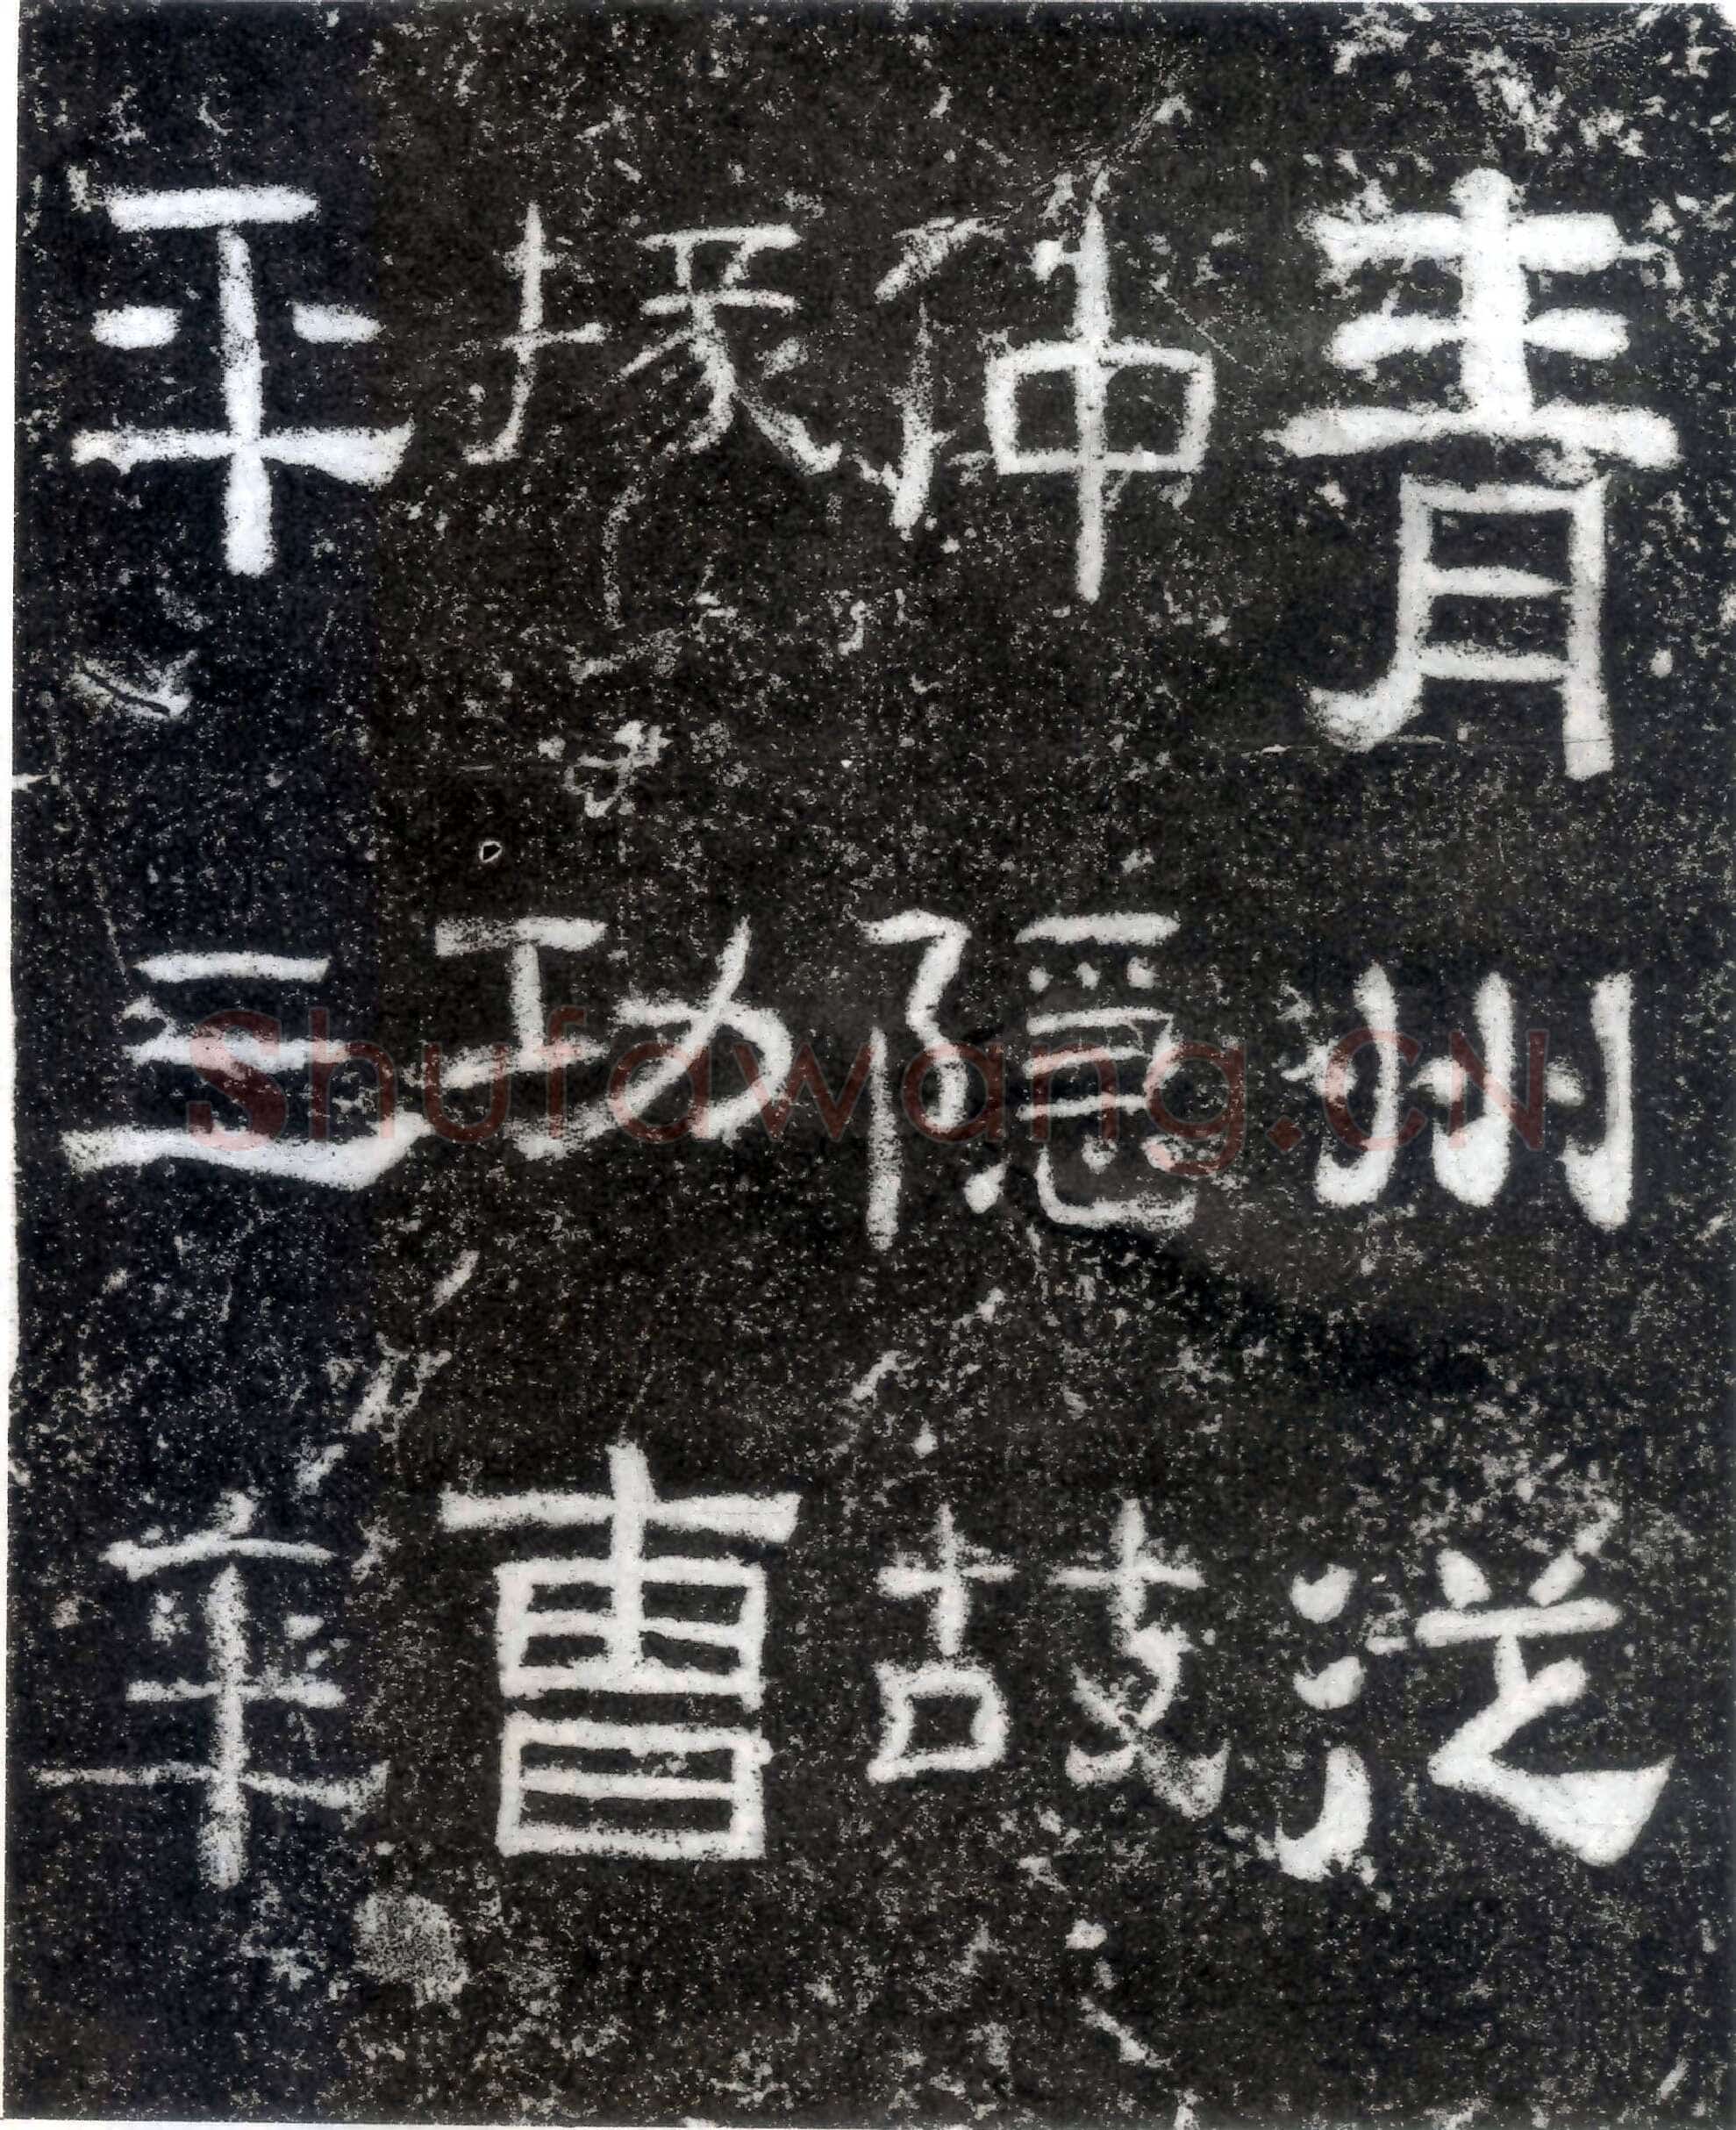 青州從
仲隱故
掾功曹
平三年
Shufawang.CN